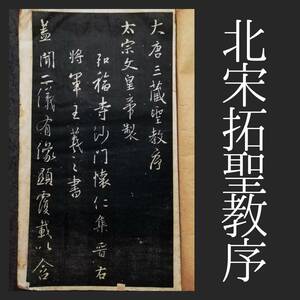 大唐三藏聖教序
太宗文皇帝製
弘福寺沙門懷仁集晉右
將軍王羲之書
蓋聞二儀有像顯覆載以含
北宋拓聖教序